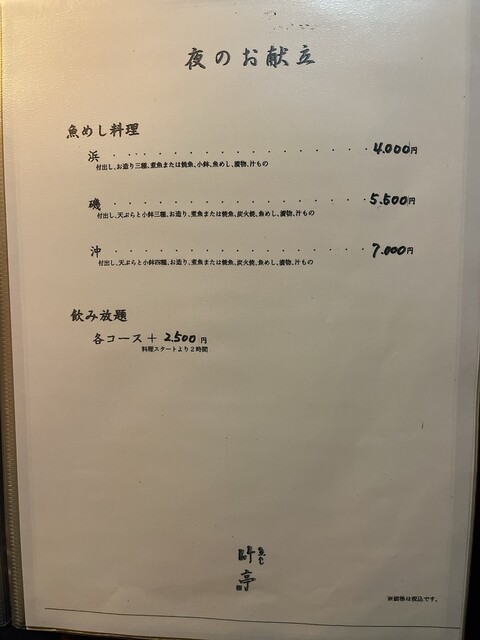 夜のお献立
魚めし料理
浜 ・・・・・・・・・・・・・・・・ 4.000円
付出し、お造り三種、煮魚または焼魚、小鉢、魚めし、漬物、汁もの
磯 ・・・・・・・・・・・・・・・・ 5.500円
付出し、天ぷらと小鉢三種、お造り、煮魚または焼魚、炭火焼、魚めし、漬物、汁もの
沖 ・・・・・・・・・・・・・・・・ 7.000円
付出し、天ぷらと小鉢四種、お造り、煮魚または焼魚、炭火焼、魚めし、漬物、汁もの
飲み放題
各コース＋2.500円
料理スタートより２時間
亭
※価格は税込です。